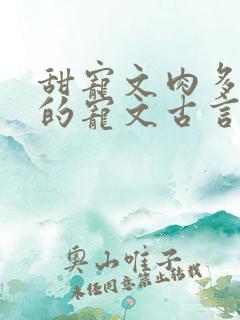 甜寵文肉多
的寵文古言
奥山唯子
未经同意禁止转载